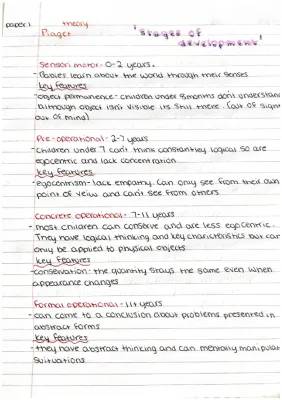 paper 1
theory
Piaget
'stages of
development'
Sensori motor - 0-2 years.
- Babies learn about the world through their senses
key features
- object permanence - children under 8months don't understand
although object isn't visible its still there. (out of sight
out of mind)
Pre-operational - 2-7 years
- children under 7 can't think constantley logical so are
egocentric and lack concentration
key features
- egocentrism - lack empathy. Can only see from their own
point of veiw and can't see from others
Concrete operational - 7-11 years
- most children can conserve and are less egocentric.
They have logical thinking and key charicteristics but can
only be applied to physical objects
key features
- conservation - the quantity stays the same even when
appearance changes
Formal operational - 11+ years
- can come to a conclusion about problems presented in
abstract forms
key features
- they have abstract thinking and can mentally manipulat
suituations